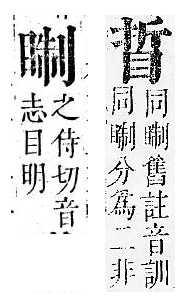 晢
同舊註音訓
同分爲二非
之侍切音
志目明